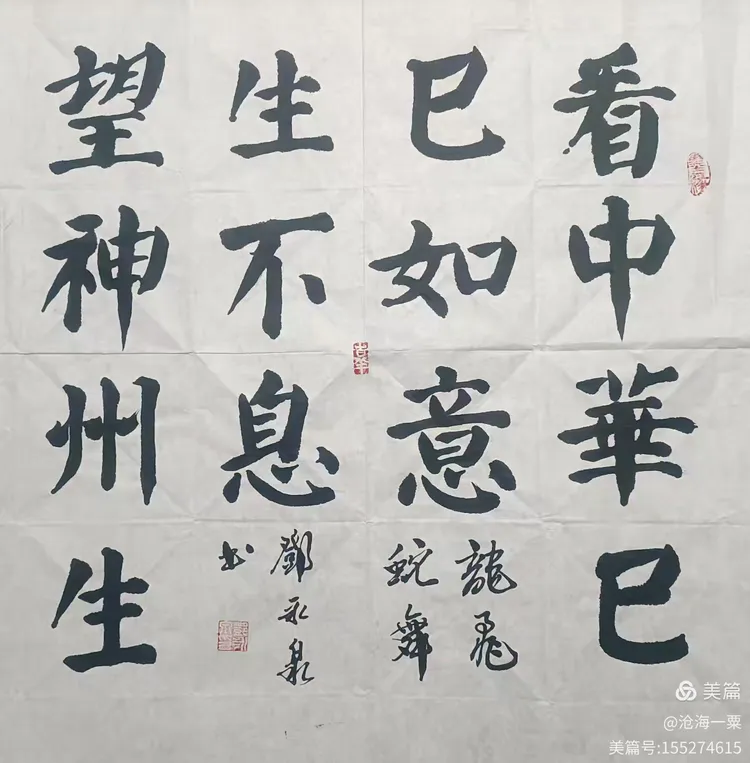 看中華巳
巳如意
龍飛
蛇舞
望神州生
生不息
鄧永泉
書
美篇
@沧海一粟
美篇号:155274615